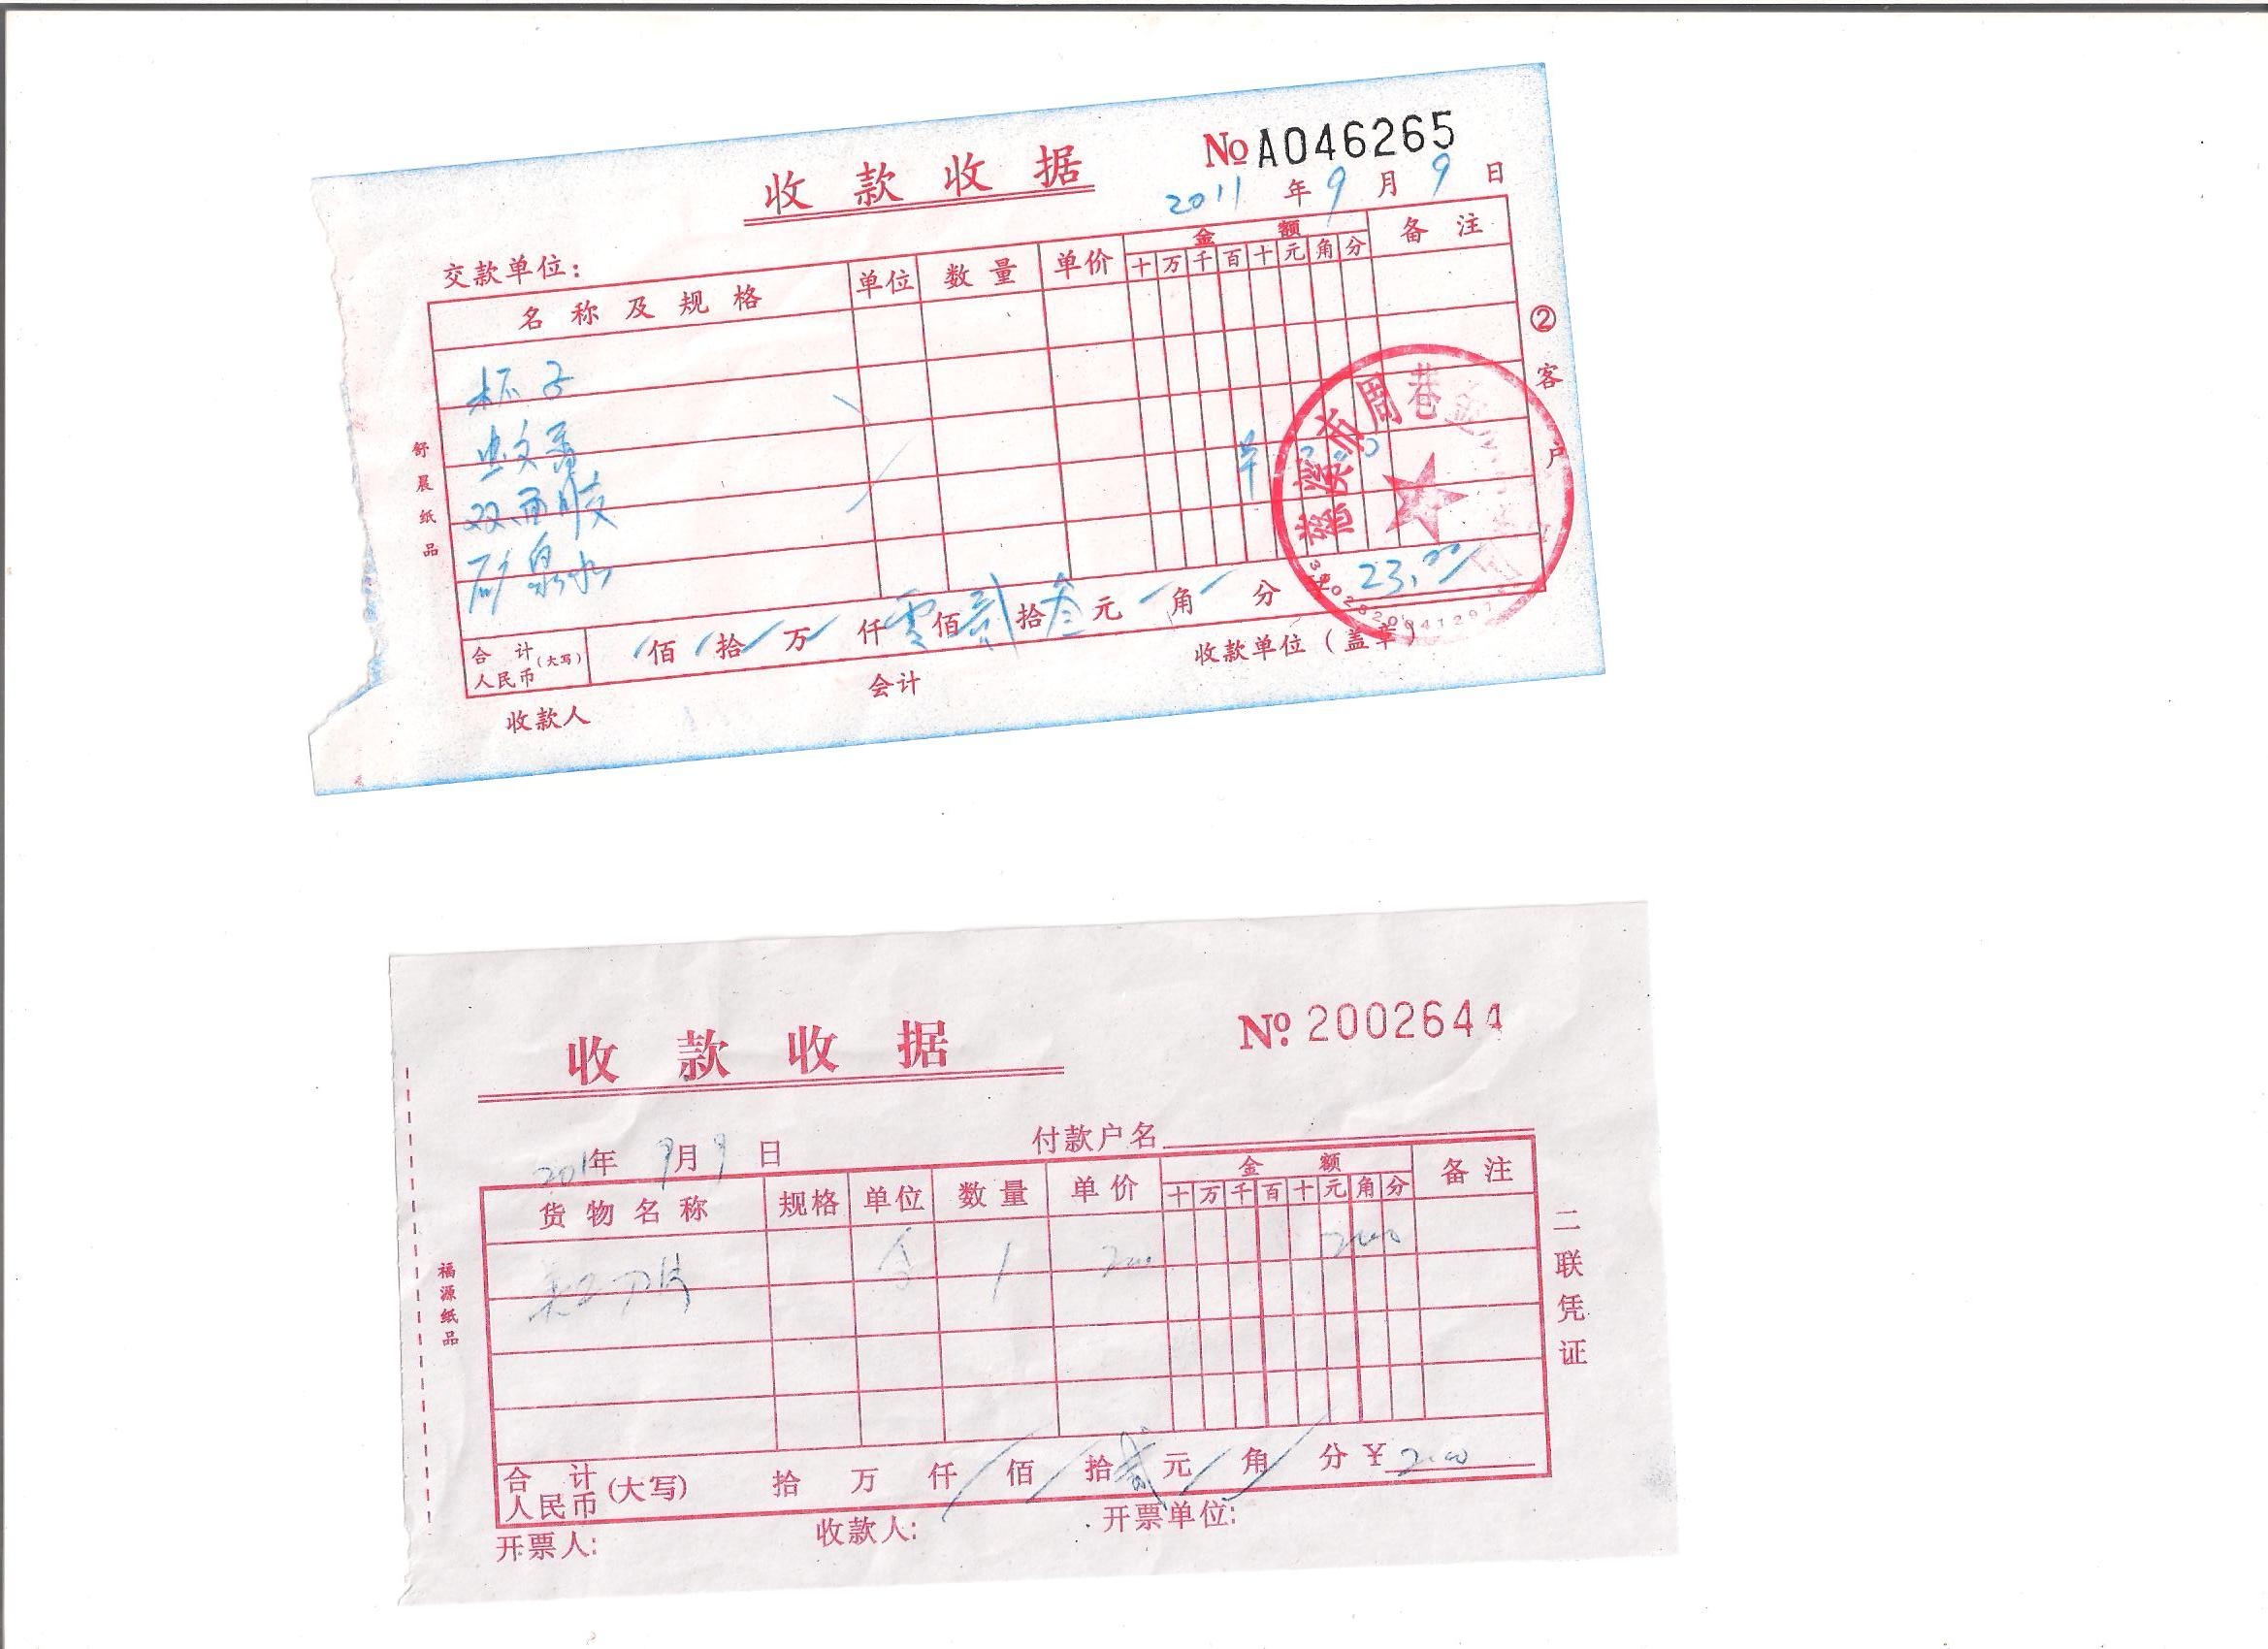 收款收据
No A046265
2011年9月9日
交款单位：
名称及规格 单位 数量 单价 金额 备注
十万千百十元角分
杯子
蚊香
双面胶
矿泉水
合计人民币(大写) 佰 拾 万 仟零佰贰拾叁元 角 分 ¥23.00
收款人 会计 收款单位（盖章）
②客户
舒晨纸品
慈溪市周巷
收款收据
No. 2002644
201年9月9日 付款户名
货物名称 规格 单位 数量 单价 金额 备注
十万千百十元角分
个 1 200 200
合计人民币(大写) 拾 万 仟 佰 拾贰元 角 分 ¥2.00
开票人： 收款人： 开票单位：
二联凭证
福源纸品